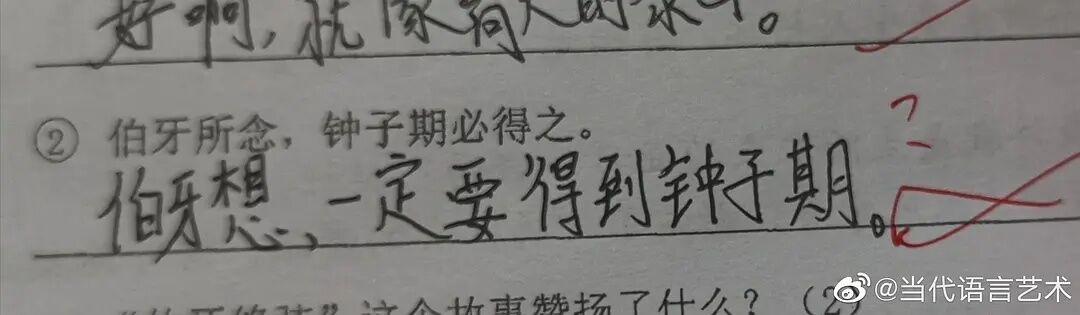 好啊，就像有人的家中。
② 伯牙所念，钟子期必得之。
伯牙想，一定要得到钟子期。
?
这个故事赞扬了什么？（2）
@当代语言艺术